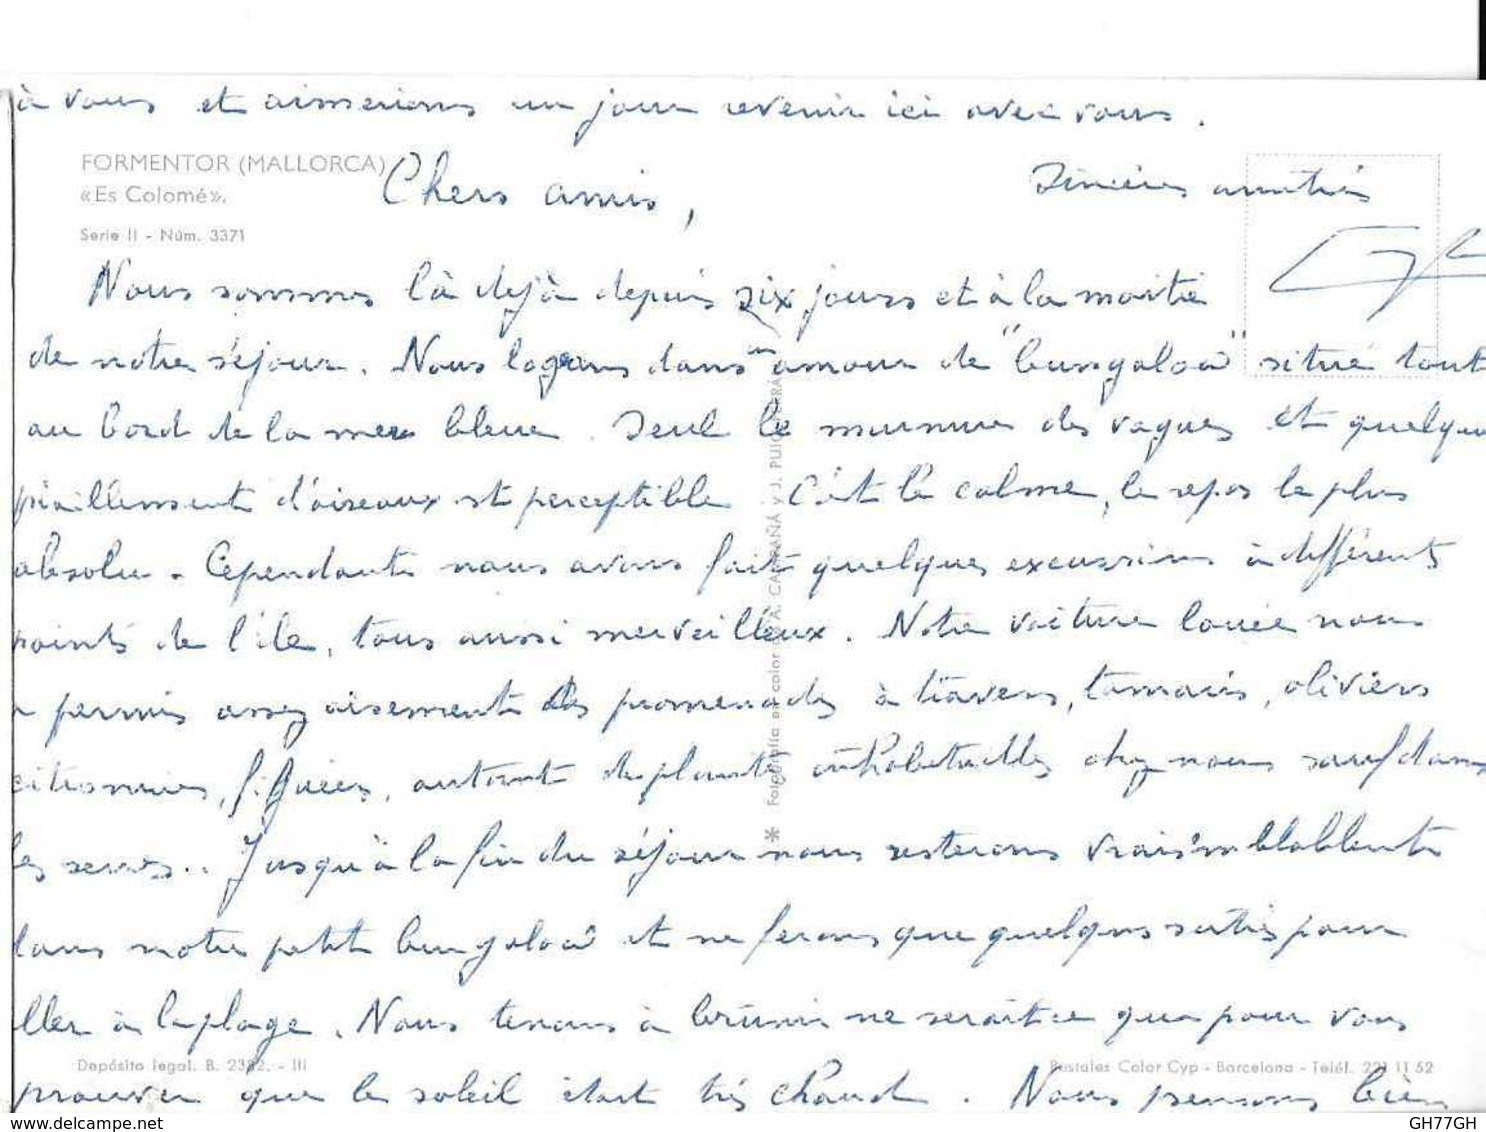 à vous et aimerions un jour revenir ici avec vous.
FORMENTOR (MALLORCA)
«Es Colomé».
Serie II - Núm. 3371
Chers amis,
Sincères amitiés
Nous sommes là déjà depuis six jours et à la moitié
de notre séjour. Nous logeons dans un amour de "bungalow" situé tout
au bord de la mer bleue. Seul le murmure des vagues et quelques
piaillements d'oiseaux est perceptible C'est le calme, le repos le plus
absolu. Cependant nous avons fait quelques excursions à différents
points de l'île, tous aussi merveilleux. Notre voiture louée nous
a permis assez aisément des promenades à travers, tamaris, oliviers
citronniers, figuiers, autant de plantes inhabituelles chez nous sauf dans
les serres.. Jusqu'à la fin du séjour nous resterons vraisemblablement
dans notre petit bungalow et ne ferons que quelques sorties pour
aller à la plage. Nous tenons à brunir ne serait ce que pour vous
prouver que le soleil était très chaud. Nous pensons bien
* Fotografía en color de A. CAMPAÑÁ y J. PUIG FERRÁN
Depósito legal. B. 2382. - III
Postales Color Cyp - Barcelona - Teléf. 221 11 52
www.delcampe.net
GH77GH